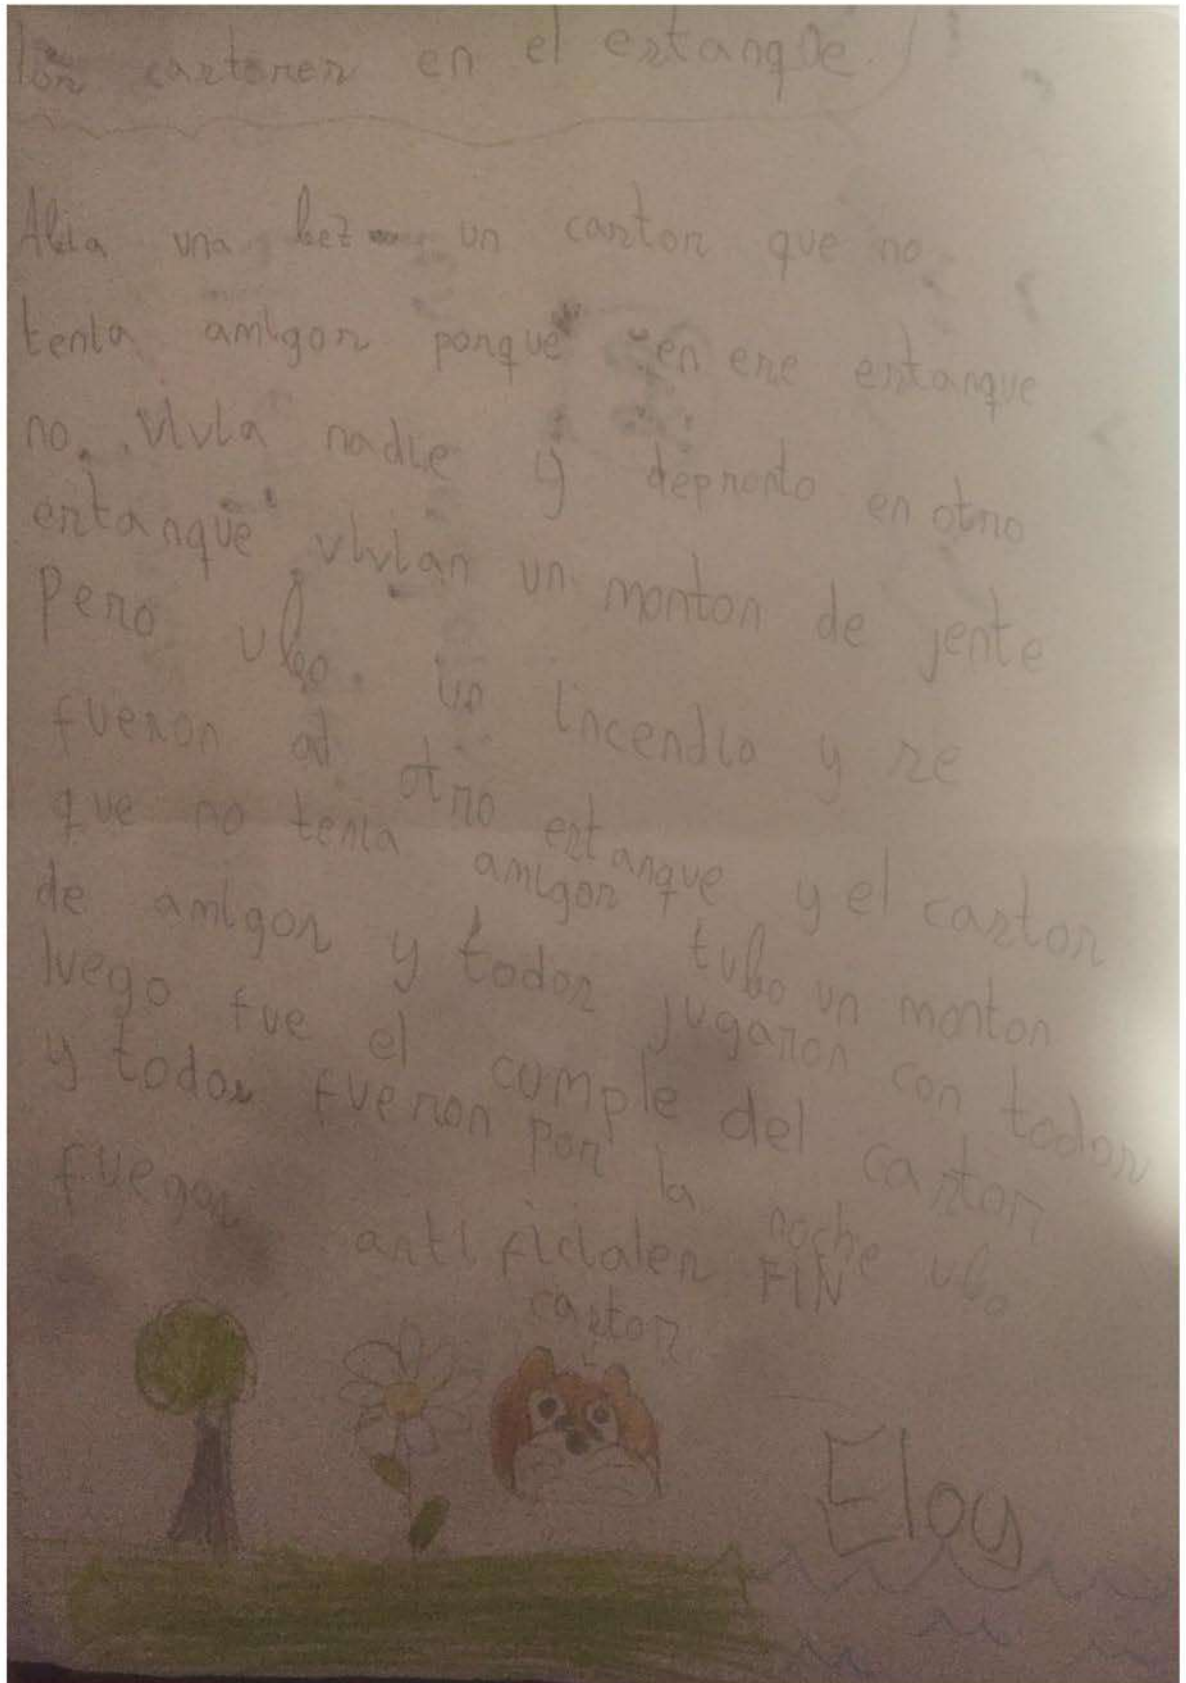 los castores en el estanque
Abia una bez un castor que no
tenia amigos porque en ese estanque
no vivia nadie y depronto en otro
estanque vivian un monton de jente
pero ubo un incendio y se
fueron al otro estanque y el castor
que no tenia amigos tubo un monton
de amigos y todos jugaron con todos
luego fue el cumple del castor
y todos fueron por la noche ubo
fuegos artificiales FIN
castor
Eloy